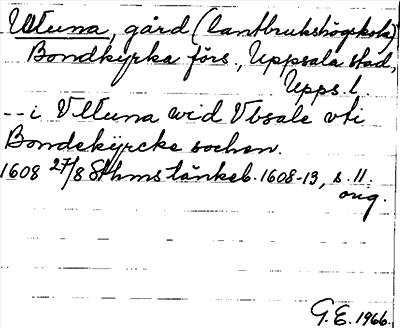 Ultuna, gård (lantbrukshögskola)
Bondkyrka förs., Uppsala stad,
Upps. l.
-- i Vlluna wid Vbsale vti
Bondekyrcke sochen.
1608 27/8 Sthms tänkeb. 1608-13, s. 11.
orig.
G.E. 1966.